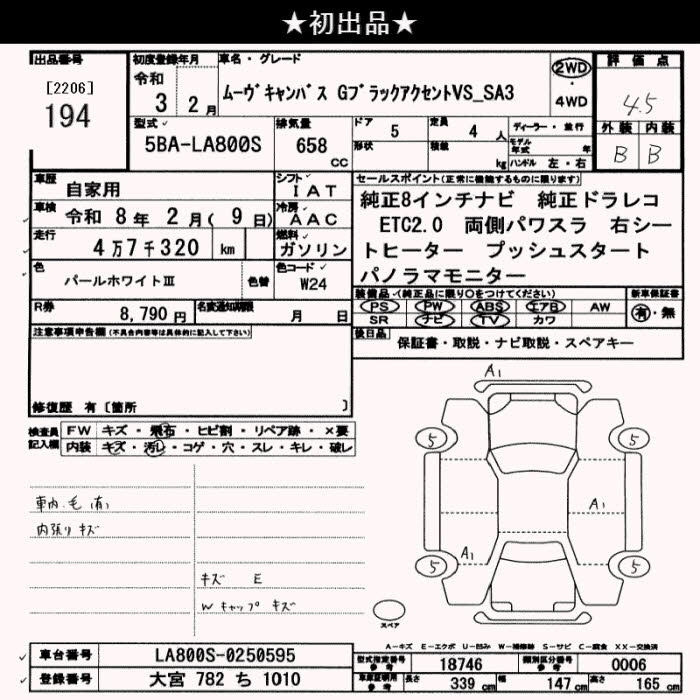 ★初出品★
出品番号
[2206]
194
初度登録年月
令和
3 2月
車名・グレード
ムーヴキャンバス GブラックアクセントVS_SA3
2WD
・
4WD
評価点
4.5
外装 内装
B B
型式
5BA-LA800S
排気量
658
cc
ドア 5
定員 4 人
ディーラー・並行
形状
積載 kg
モデル年式 年
ハンドル 左・右
車歴
自家用
シフト
IAT
車検
令和 8年 2月( 9日)
冷房
AAC
走行
4万7千320 km
燃料
ガソリン
色
パールホワイトⅢ
色替
色コード
W24
R券
8,790円
名変通知期限
月 日
セールスポイント(正常に機能するものに限ります)
純正8インチナビ 純正ドラレコ
ETC2.0 両側パワスラ 右シー
トヒーター プッシュスタート
パノラマモニター
装備品 (純正品に限り○をつけてください)
PS PW ABS エアB AW
SR ナビ TV カワ
新車保証書
有・無
後日品
保証書・取説・ナビ取説・スペアキー
注意事項申告欄(不具合内容等は具体的に記入して下さい)
修復歴 有〔箇所 〕
検査員
記入欄
FW キズ・飛石・ヒビ割・リペア跡・×要
内装 キズ・汚レ・コゲ・穴・スレ・キレ・破レ
車内 毛(有)
内張り キズ
キズ E
Wキャップ キズ
A1
5 5
A1
A1
5 5
スペア
A−キズ E−エクボ U−凹み W−補修跡 S−サビ C−腐食 XX−交換済
車台番号
LA800S-0250595
登録番号
大宮 782 ち 1010
型式指定番号
参考
18746
類別区分番号
参考
0006
車庫証明用
参考
長さ 339 cm
幅 147 cm
高さ 165 cm